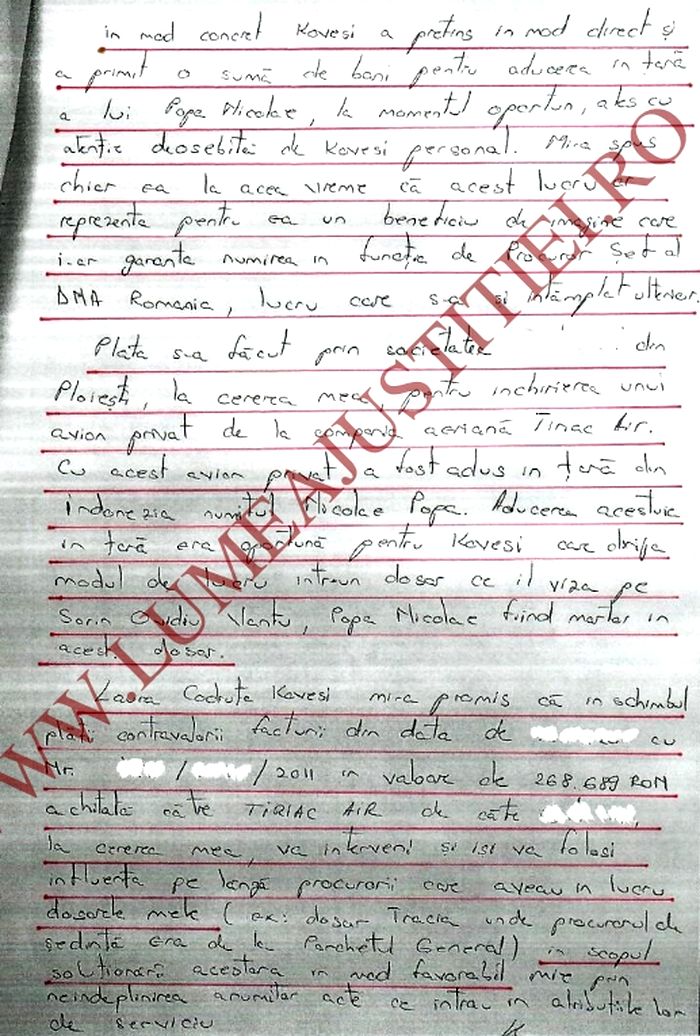 in mod concret Kovesi a pretins in mod direct și
a primit o sumă de bani pentru aducerea in țară
a lui Popa Nicolae, la momentul oportun, ales cu
atenție deosebită de Kovesi personal. Mi-a spus
chiar ea la acea vreme că acest lucru ar
reprezenta pentru ea un beneficiu de imagine care
i-ar garanta numirea in funcția de Procuror Șef al
DNA Romania, lucru care s-a si intâmplat ulterior.
Plata s-a făcut prin societatea din
Ploiești, la cererea mea, pentru inchirierea unui
avion privat de la compania aeriană Tiriac Air.
Cu acest avion privat a fost adus in țară din
Indonezia numitul Nicolae Popa. Aducerea acestuia
in țară era oportună pentru Kovesi care dirija
modul de lucru intr-un dosar ce il viza pe
Sorin Ovidiu Vantu, Popa Nicolae fiind martor in
acest dosar.
Laura Codruta Kovesi mi-a promis că in schimbul
plății contravalorii facturii din data de cu
Nr. / / 2011 in valoare de 268.689 RON
achitată către TIRIAC AIR de către ,
la cererea mea, va interveni și iși va folosi
influența pe langă procurorii care aveau in lucru
dosarele mele ( ex: dosar Tracia unde procurorul de
ședință era de la Parchetul General) in scopul
soluționării acestora in mod favorabil mie prin
neindeplinirea anumitor acte ce intrau in atribuțiile lor
de serviciu
WWW.LUMEAJUSTITIEI.RO